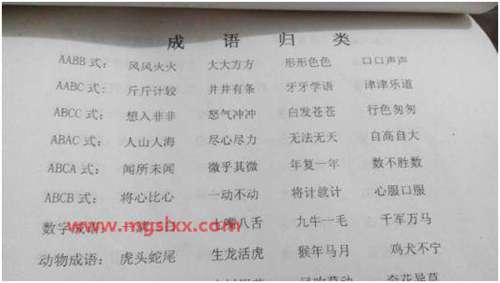 成 语 归 类
AABB 式： 风风火火 大大方方 形形色色 口口声声
AABC 式： 斤斤计较 井井有条 牙牙学语 津津乐道
ABCC 式： 想入非非 怒气冲冲 白发苍苍 行色匆匆
ABAC 式： 人山人海 尽心尽力 无法无天 自高自大
ABCA 式： 闻所未闻 微乎其微 年复一年 数不胜数
ABCB 式： 将心比心 一动不动 将计就计 心服口服
数字成语： 七嘴八舌 九牛一毛 千军万马
www.mgslxx.com
动物成语： 虎头蛇尾 生龙活虎 猴年马月 鸡犬不宁